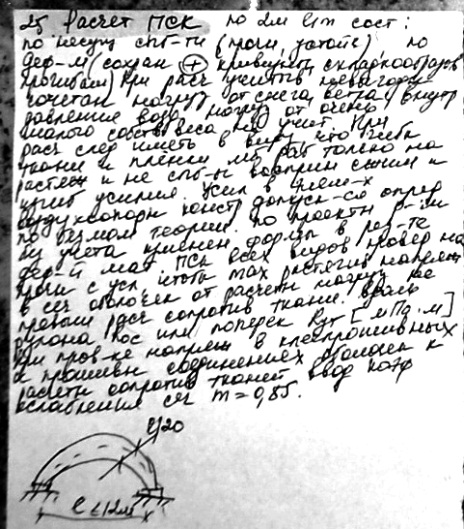 25 Расчет ПСК по 2м lim сост:
по несущ спб-ти (прочн, устойч), по
деф-м (сохран ⊕ кривизны, складкообразов
прогибам) При расч учитыв невыгодн
сочетан нагруз от снега, ветра, внутр
давления возд, нагруз от очень
малого собств веса не учит. При
расч след иметь в виду, что гибк
ткани и пленки мо раб только на
растяж и не спб-ы восприн сжим и
изгиб усилия. Усил в элем-х
воздухоопорн конст допуск-ся опред
по безмом теории, по проектн р-ам
без учета изменен формы в рез-те
деф-й мат. ПСК всех видов провер на
прочн с усл, чтобы max растягив напряж
в сеч оболочек от расчетн нагруз не
превыш расч сопротив ткани вдоль
рулона Roc или поперек Rут [мПа·м]
При пров-ке напряж в клепрошивных
и прошивн соединениях оболочек к
расчетн сопротив тканей ввод коэф
ослабления сеч m = 0,85.
l/20
l ≤ 12м